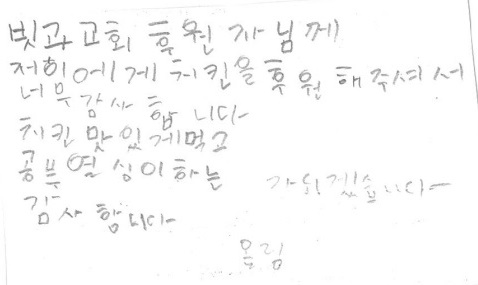 빛과교회 후원 자님께
저희에게 치킨을 후원 해주셔서
너무 감사 합 니다
치킨 맛있게먹고
공부열 심이하는
가 되겠습니다
감사 합니다
올림